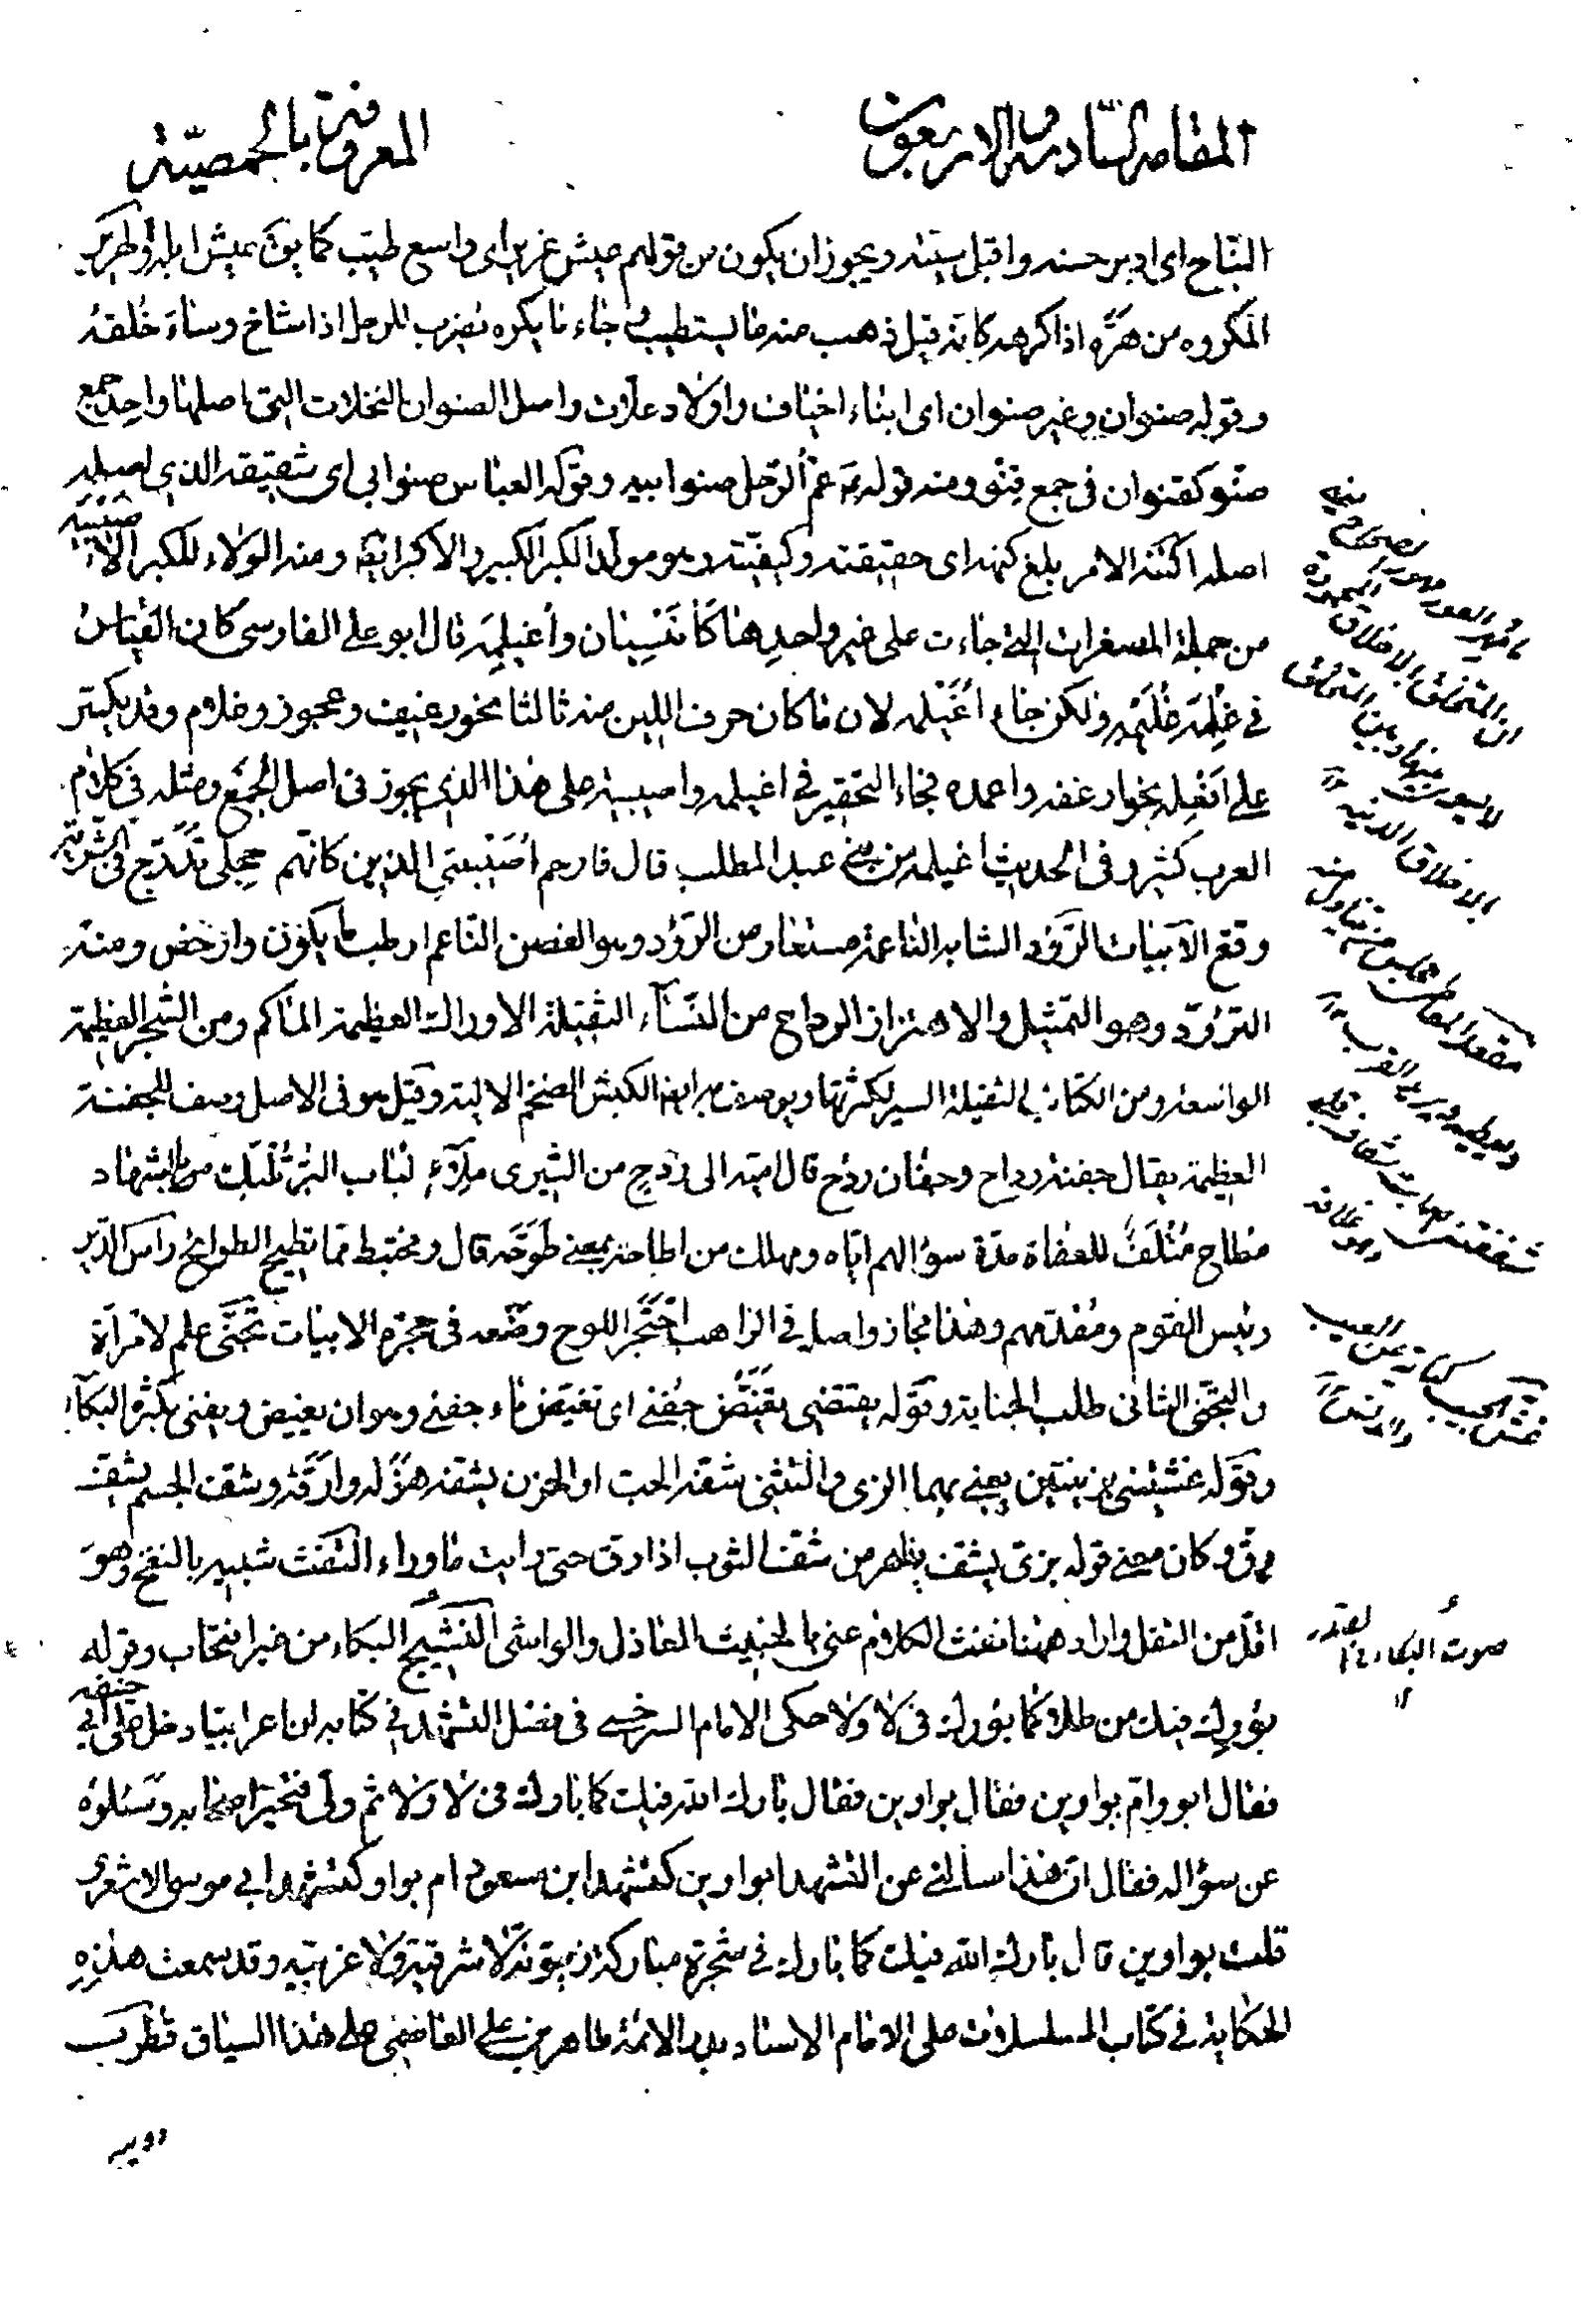 المقامة السّادسة والاربعون المعروفة بالحمصيّة
النباح اى ادبر حسنه واقبل سيّئه ويجوز ان يكون من قولهم عيش غرير اى واسع طيّب كما يق عيش ابله والهرير
المكروه من هرّه اذا كرهه كانه قيل ذهب منه ما يستطيب و جاء ما يكره يضرب للرجل اذا شاخ وساءَ خُلقه
وقوله صنوان وغير صنوان اى ابناء اخياف واولاد علّات واصل الصنوان النخلات التى اصلها واحد جمع
صنو كقنوان فى جمع قنو ومنه قوله عم عمّ الرّجل صنو ابيه وقوله العباس صنو ابى اى شقيقه الذى اصله
اصله اكتنه الامر بلغ كنهه اى حقيقته وكيفيّته وهو مولد الكبر الكبير والاكبر ايضا ومنه الولاء للكبر الاُ صيبية
من جملة المصغرات التى جاءت على غير واحدها كاُنَيْسِيان واُغيلمة قال ابو على الفارسى كان القياسُ
فى غِلْمة غُلَيْمة ولكن جاء اُغَيْلمة لان ما كان حرف اللين منه ثالثا نحو رغيف وعجوز وغلام وقد يكسّر
على اَفْعِلة نحو ارغفة واعمدة فجاء التحقير فى اغيلمة واصيبية على هذا الذى يجوز فى اصل الجمع ومثله فى كلام
العرب كثير وفى الحديث اغيلمة من بنى عبد المطلب قال فارحم اُصَيْبيتي الذين كانّهم حجلى تدرّج فى الشربّة
وقع الابيات الرَّؤد الشابة الناعمة مستعار من الرّؤد وهو الغصن الناعم ارطب ما يكون وارخص ومنه
الترؤد وهو التمثيل والاهتزاز الرداح من النسآء الثقيلة الاوراك العظيمة المآكم ومن الشجر العظيمة
الواسعة ومن الكتائب الثقيلة السير لكثرتها ويوصف به ايضا الكبش الضخم الالية وقيل هو فى الاصل وصف للجفنة
العظيمة يقال جفنة رداح وجفان ردح قال اميّة الى رُدُحٍ من الشيزى مِلآءٍ لباب البُرّ يُلبك بالشهاد
مطاح مُتْلَفٌ للعفاة مدّة سؤالهم ايّاه ومهلك من اطاحه بمعنى طوّحه قال ومختبط مما تطيح الطوائح راس الدير
رئيس القوم ومقدمهم وهذا مجاز واصله فى الراهب احْتَجَر اللوح وضعه فى حجره الابيات تَجَنّى علم لامرأة
والتجنّى الثانى طلب الجناية وقوله يفتضى يقْتَضُّ جفنى اى تغيض ماء جفنى وهو ان يغيض ويفنى بكثرة البكآء
وقوله غشيتنى بزينتين يعنى بهما الزى والتثنى شفّه الحب او الحزن يشفه هزّله وارقّه وشف الجسم يشف
رقّ وكان معنى قوله بزىّ يشف يظهر من شف الثوب اذا رق حتى رايت ما وراءه النفث شبيه بالنفخ وهو
اقلّ من التفل واراد ههنا نفث الكلام عنى بالخبيث العاذل والواشى النَشيج البكاء من غير انتحاب وقوله
بورك فيك من طلا كما بورك فى لا ولا حكى الامام السرخسى فى فصل التشهد فى كتابه ان اعرابيا دخل على ابى حنيفة
فقال ابواو ام بواوين فقال بواوين فقال بارك الله فيك كما بارك فى لا ولا ثم ولّى فتحيّر اصحابه وسئلوه
عن سؤاله فقال ان هذا سألنى عن التشهد ابواوين كتشهد ابن مسعود ام بواو كتشهد ابى موسى الاشعرى
قلت بواوين قال بارك الله فيك كما بارك فى شجرة مباركة زيتونة لا شرقية ولا غربية وقد سمعت هذه
الحكاية فى كتاب المسلسلات على الامام الاستاد بدر الائمة طاهر بن على القاضى على هذا السياق قطرب
دويبه
ان التخلق
بالاخلاق الدنية
شغفته
كناية عن العيب
صوت البكاء